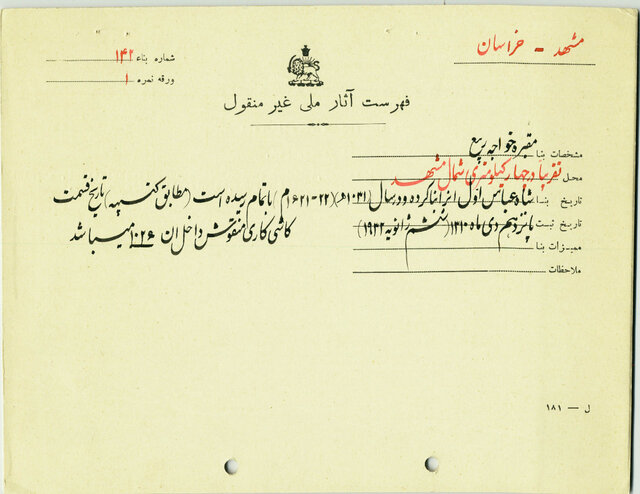 مشهد - خراسان
شماره بناء ۱۴۲
ورقه نمره ۱
فهرست آثار ملی غیر منقول
مشخصات بنا مقبره خواجه ربیع
محل تقریباً در چهار کیلومتری شمال مشهد
تاریخ بنا شاه عباس اول انرا بنا کرده و در سال (۱۰۳۱ ه) (۲۲-۱۶۲۱ م) باتمام رسیده است (مطابق کتیبه) تاریخ قسمت
کاشی کاری منقوش داخل ان ۱۰۲۶ میباشد
تاریخ ثبت پانزدهم دی ماه ۱۳۱۰ (ششم ژانویه ۱۹۳۲)
ممیزات بنا
ملاحظات
ل — ۱۸۱